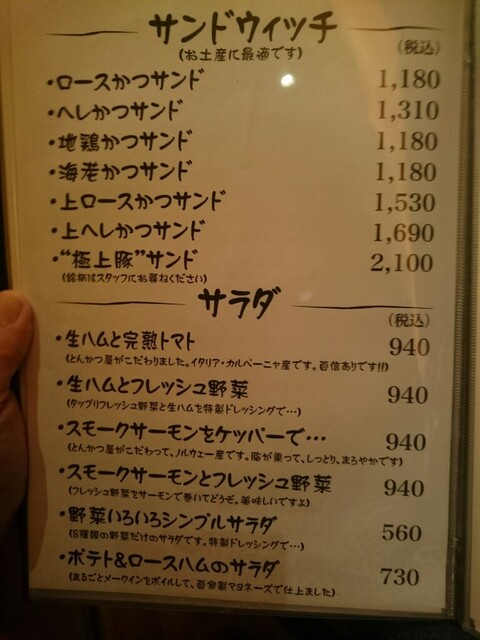 サンドウィッチ
(お土産に最適です)
(税込)
・ロースかつサンド 1,180
・ヘレかつサンド 1,310
・地鶏かつサンド 1,180
・海老かつサンド 1,180
・上ロースかつサンド 1,530
・上ヘレかつサンド 1,690
・“極上豚”サンド 2,100
(銘柄はスタッフにお尋ねください)
サラダ
(税込)
・生ハムと完熟トマト 940
(とんかつ屋がこだわりました。イタリア・カルペーニャ産です。自信ありです!!)
・生ハムとフレッシュ野菜 940
(タップリフレッシュ野菜と生ハムを特製ドレッシングで…)
・スモークサーモンをケッパーで… 940
(とんかつ屋がこだわって、ノルウェー産です。脂が乗って、しっとり、まろやかです)
・スモークサーモンとフレッシュ野菜 940
(フレッシュ野菜をサーモンで巻いてどうぞ。美味しいですよ)
・野菜いろいろシンプルサラダ 560
(8種類の野菜だけのサラダです。特製ドレッシングで…)
・ポテト&ロースハムのサラダ 730
(まるごとメークインをボイルして、自家製マヨネーズで仕上ました)